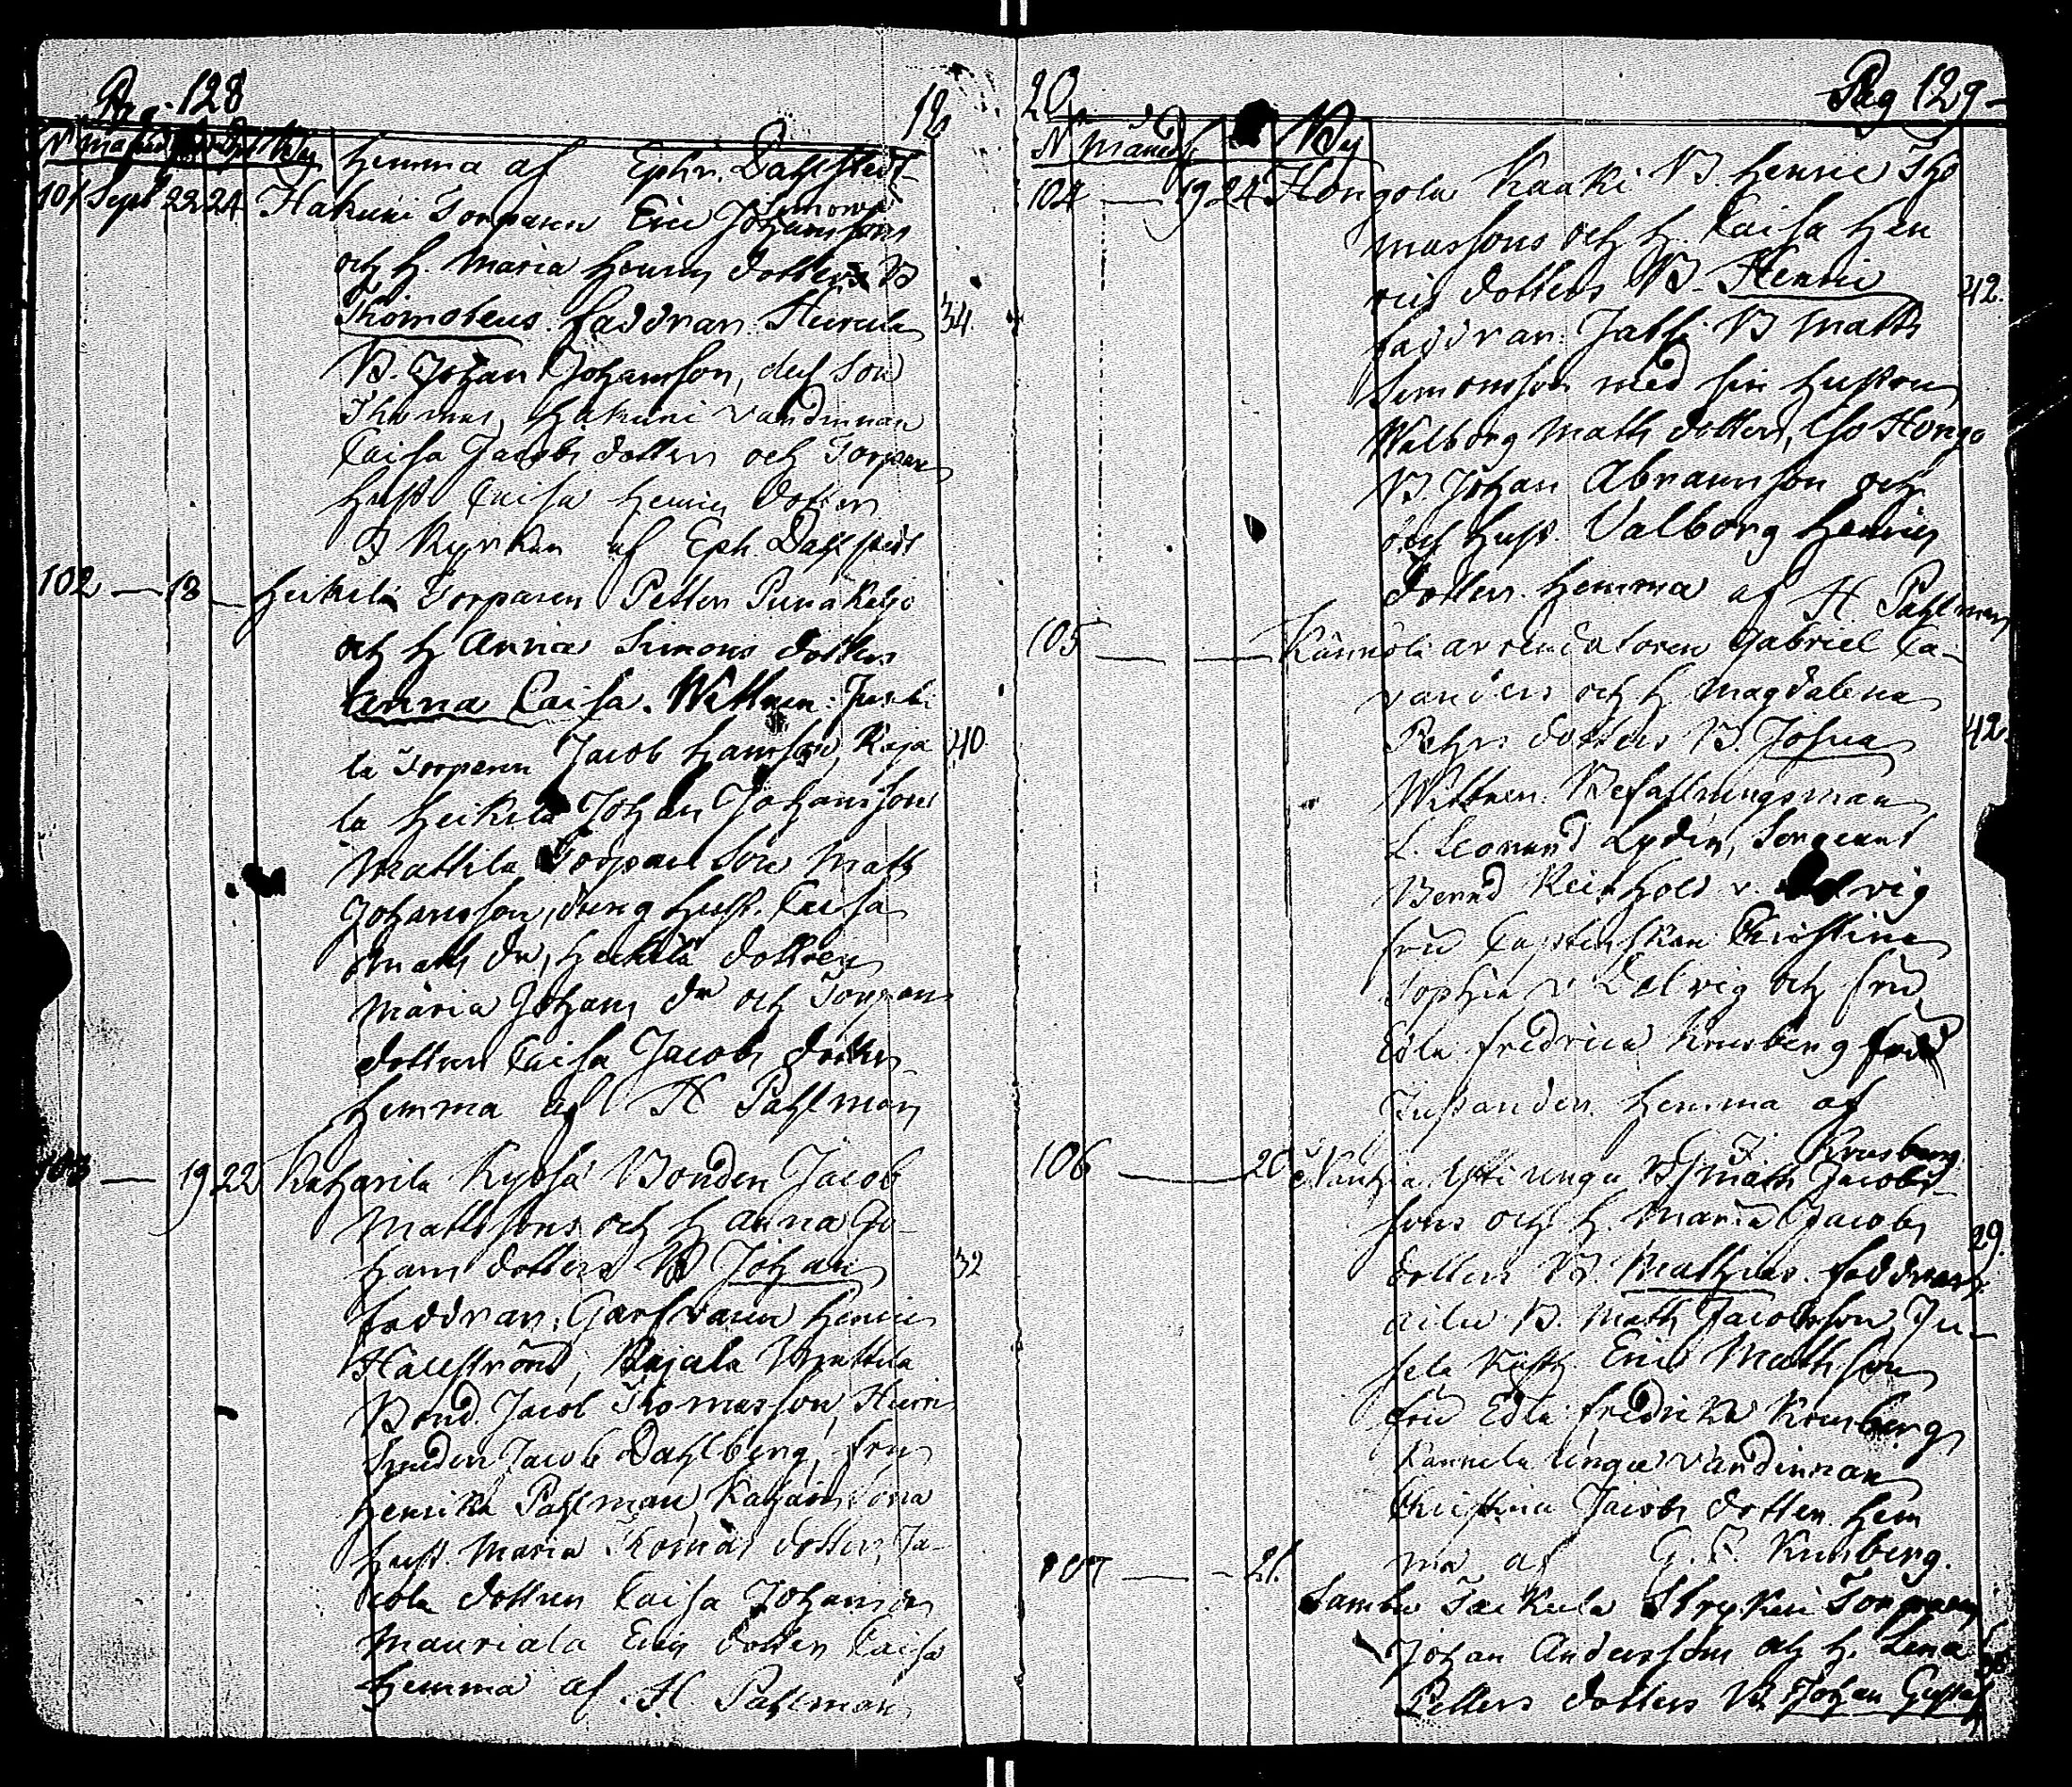 Pag. 128
18
N månad By
hemma af Ephr. Dahlstedt
101 Sept 22 24 Hakuni Torparen Eric Johanssons
och h. Maria Henrics dotters B
Thimoteus. faddrar: Heicula 34.
B. Johan Johansson, des son
Thomas, Hakuni värdinnan
Caisa Jacobs dotter och Torpar
hust Caisa Henrics dotter
I kyrkan af Eph Dahlstedt
102 — 18 — Heikilä Torparen Petter Punakejo
och h Anna Simons dotters
Anna Caisa. Wittnen: Jusi
la Torparen Jacob Hansson, Kaja 40.
la Heikilä Johan Johansson
Mattila Torpare son Matts
Johansson, dräng hust. Caisa
Matts dr, Heikilä dottren
Maria Johans dr och Torpare
dottren Caisa Jacobs dotter
hemma af H Pahlman
103 — 19 22 Katharila Kyösä Bonden Jacob
Mattssons och h Anna Jo-
hans dotters B Johan 32
faddrar, Garfvaren Henric
Hallström, Kajala Mattila
Bond. Jacob Thomasson, Hieri
Smeden Jacob Dahlberg, fru
Henrika Pahlman, Katharila
hust Maria Thomas dotter, Ja-
cola dottren Caisa Johans dr
Mauriala Erics dotter Caisa
hemma af H. Pahlman
20
Pag 129
N månad By
104 — 19 24 Hongola Kaaki B. Henric Tho
massons och h. Caisa Hen
rics dotters B. Henric 42.
faddrar: Jalli B Matts
Simonsson med sin hustru
Walborg Matts dotter, Iso Hongo
B. Johan Abramsson och
des hust. Valborg Henrics
dotter. hemma af H Pahlman
105 — Kännölä arrendatoren Gabriel Ca-
vanders och h Magdalena
Pehrs dotters B. Josua 42.
Wittnen: Befallningsman
L. Leonard Lydén, Sergeant
Bernd Reinhold v. Delvig
fru Captenskan Christina
Sophia v Delvig och fru
Edla Fredrica Krusberg född
Jusander. hemma af
G. F. Krusberg
106 — 20 Nauhia Yli unga B. Matts Jacobs-
sons och h. Maria Jacobs 29.
dotters B. Mathias. faddrar:
B. Matts Jacobsson, Ju-
sela Eric Mattsson
fru Edla Fredrika Krusberg
Kännela unga värdinnan
Christina Jacobs dotter. hem
ma af G. F. Krusberg.
107 — 21. Sambu Torparen
Johan Andersson och h. Lena
Petters dotters B. Johan Gustaf